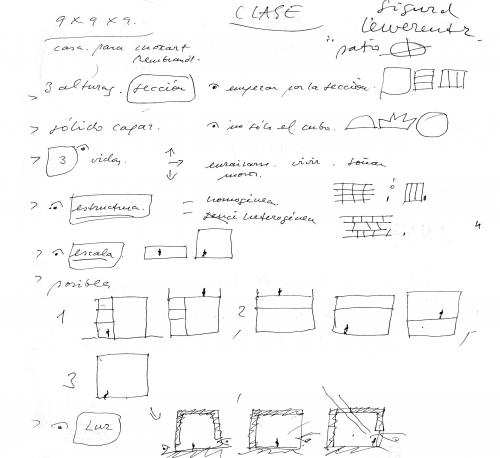 9 x 9 x 9.
CLASE
Sigurd
Lewerentz.
casa para mozart
rembrandt.
patio
> 3 alturas. sección
empezar por la sección.
> sólido capaz.
no sólo el cubo.
> 3 vidas.
enraizarse. vivir. soñar
morir.
> estructura.
= homogénea.
= heterogénea
4
> escala
> posibles
1
2
3
> Luz